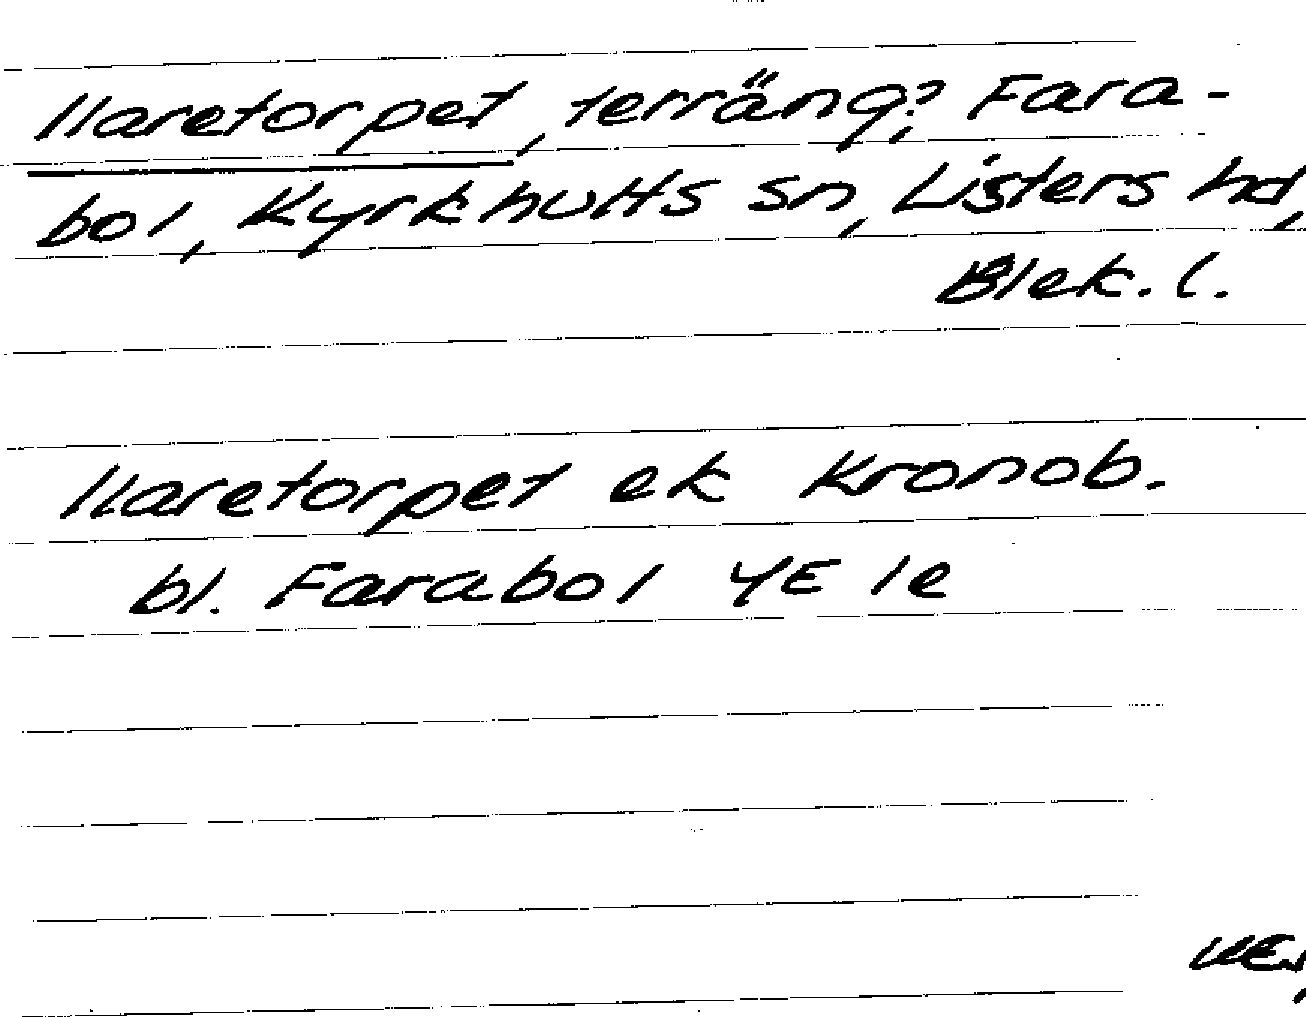 Ilaretorpet, terräng?, Fara-
bol, Kyrkhults sn, Listers hd,
Blek. l.
Ilaretorpet ek Kronob.
bl. Farabol 4E 1e